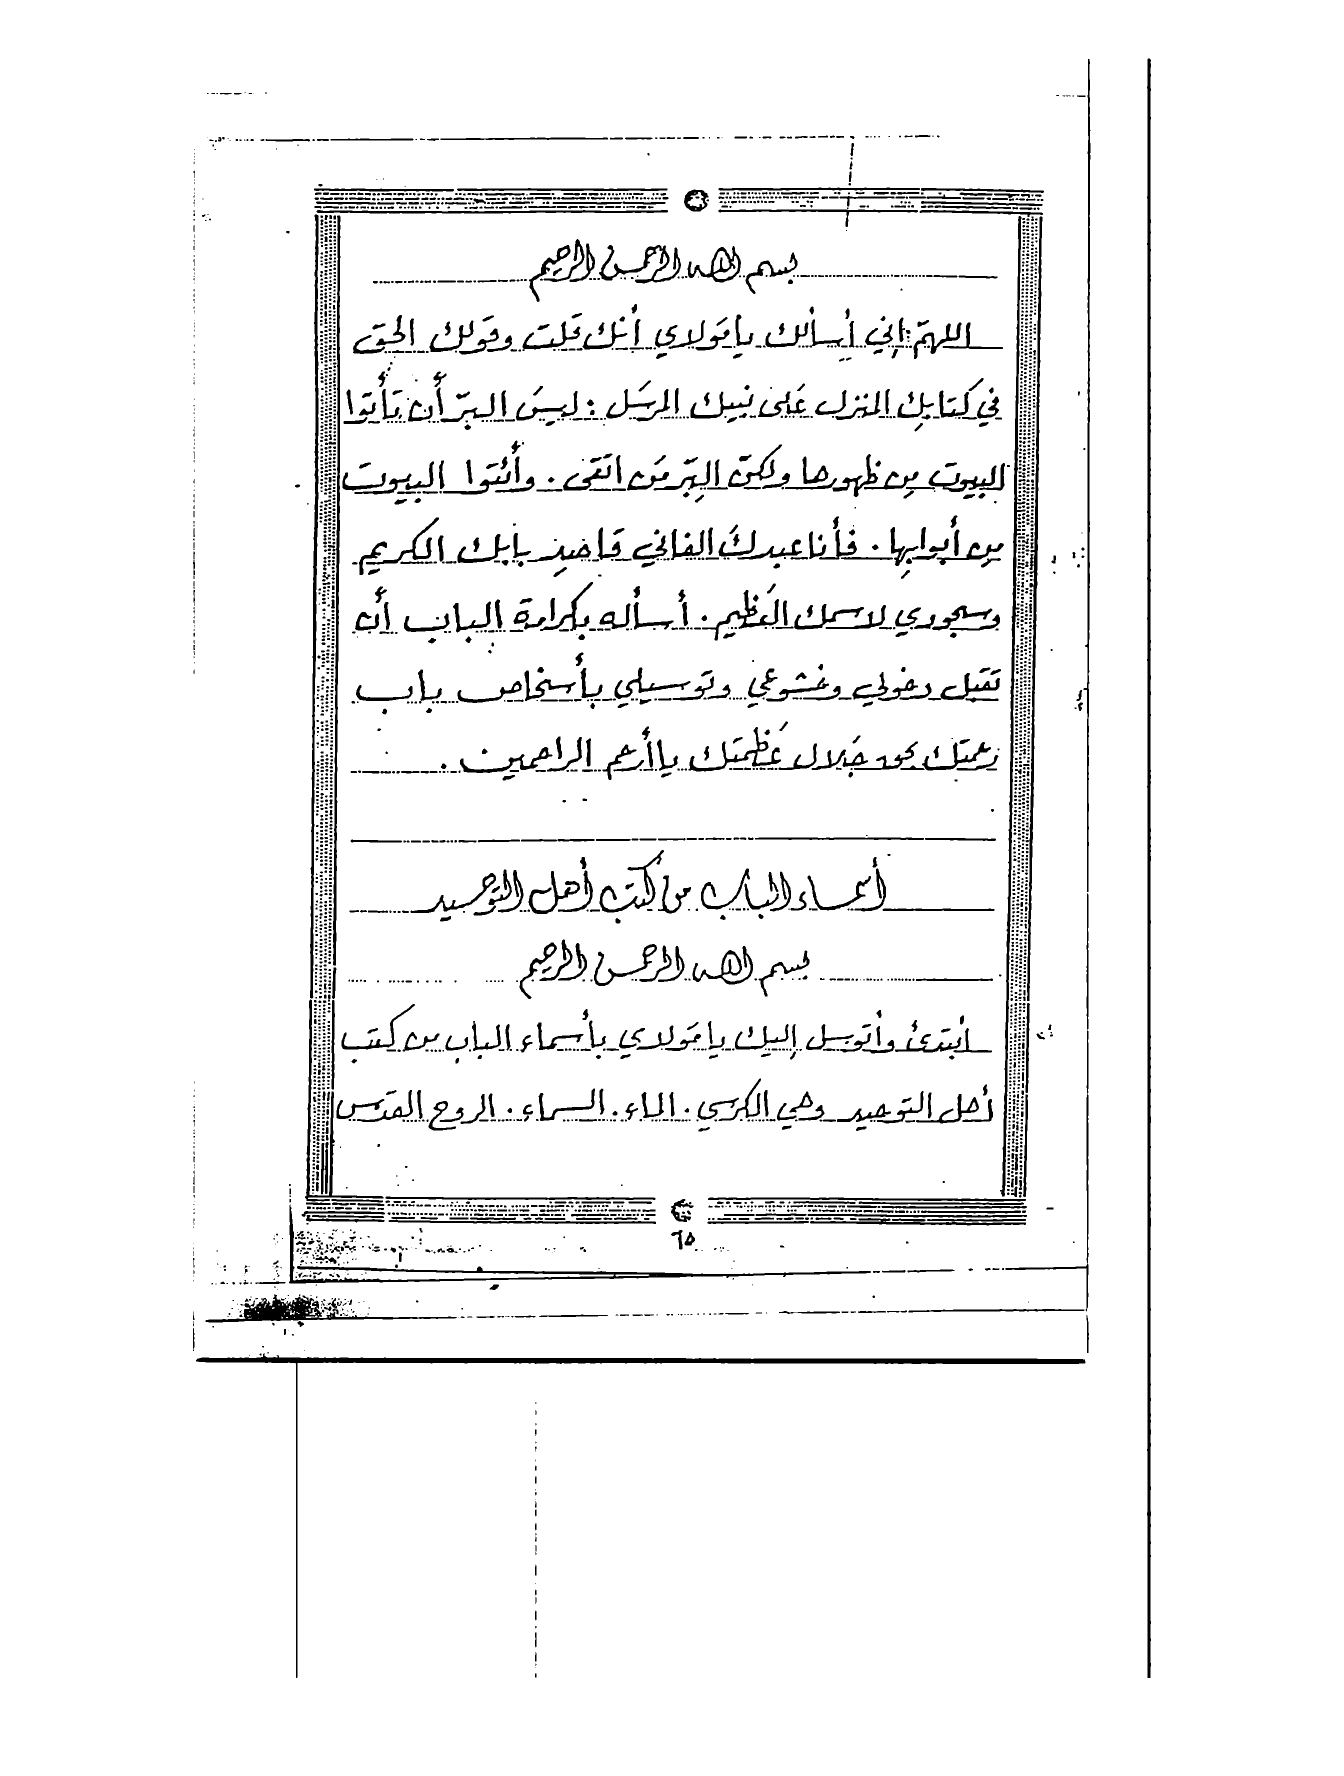 بسم الله الرحمن الرحيم
اللهمّ إني أسألك يا مَولاي أنك قلت وقولك الحق
في كتابك المنزل على نبيك المرسَل : ليسَ البرّ أن تأتوا
البيوت مِن ظهورها ولكنّ البِّر مَن اتقى . وأئتوا البيوت
مِن أبوابِها . فأنا عبدك الفاني قاصِد بابك الكريم
وسجودي لاسمك العَظيم . أسأله بكرامة الباب أن
تقبَل دخولي وخشوعي وتوسيلي بأشخاص باب
رحمتك بحق جَلال عَظمتك يا أرحم الراحمين .
أسماء الباب من كتب أهل التوحيد
بسم الله الرحمن الرحيم
أبتدئ وأتوسل إليك يا مَولاي بأسماء الباب من كتب
أهل التوحيد وهي الكرسي . الماء . السماء . الروح القدس
٦٥